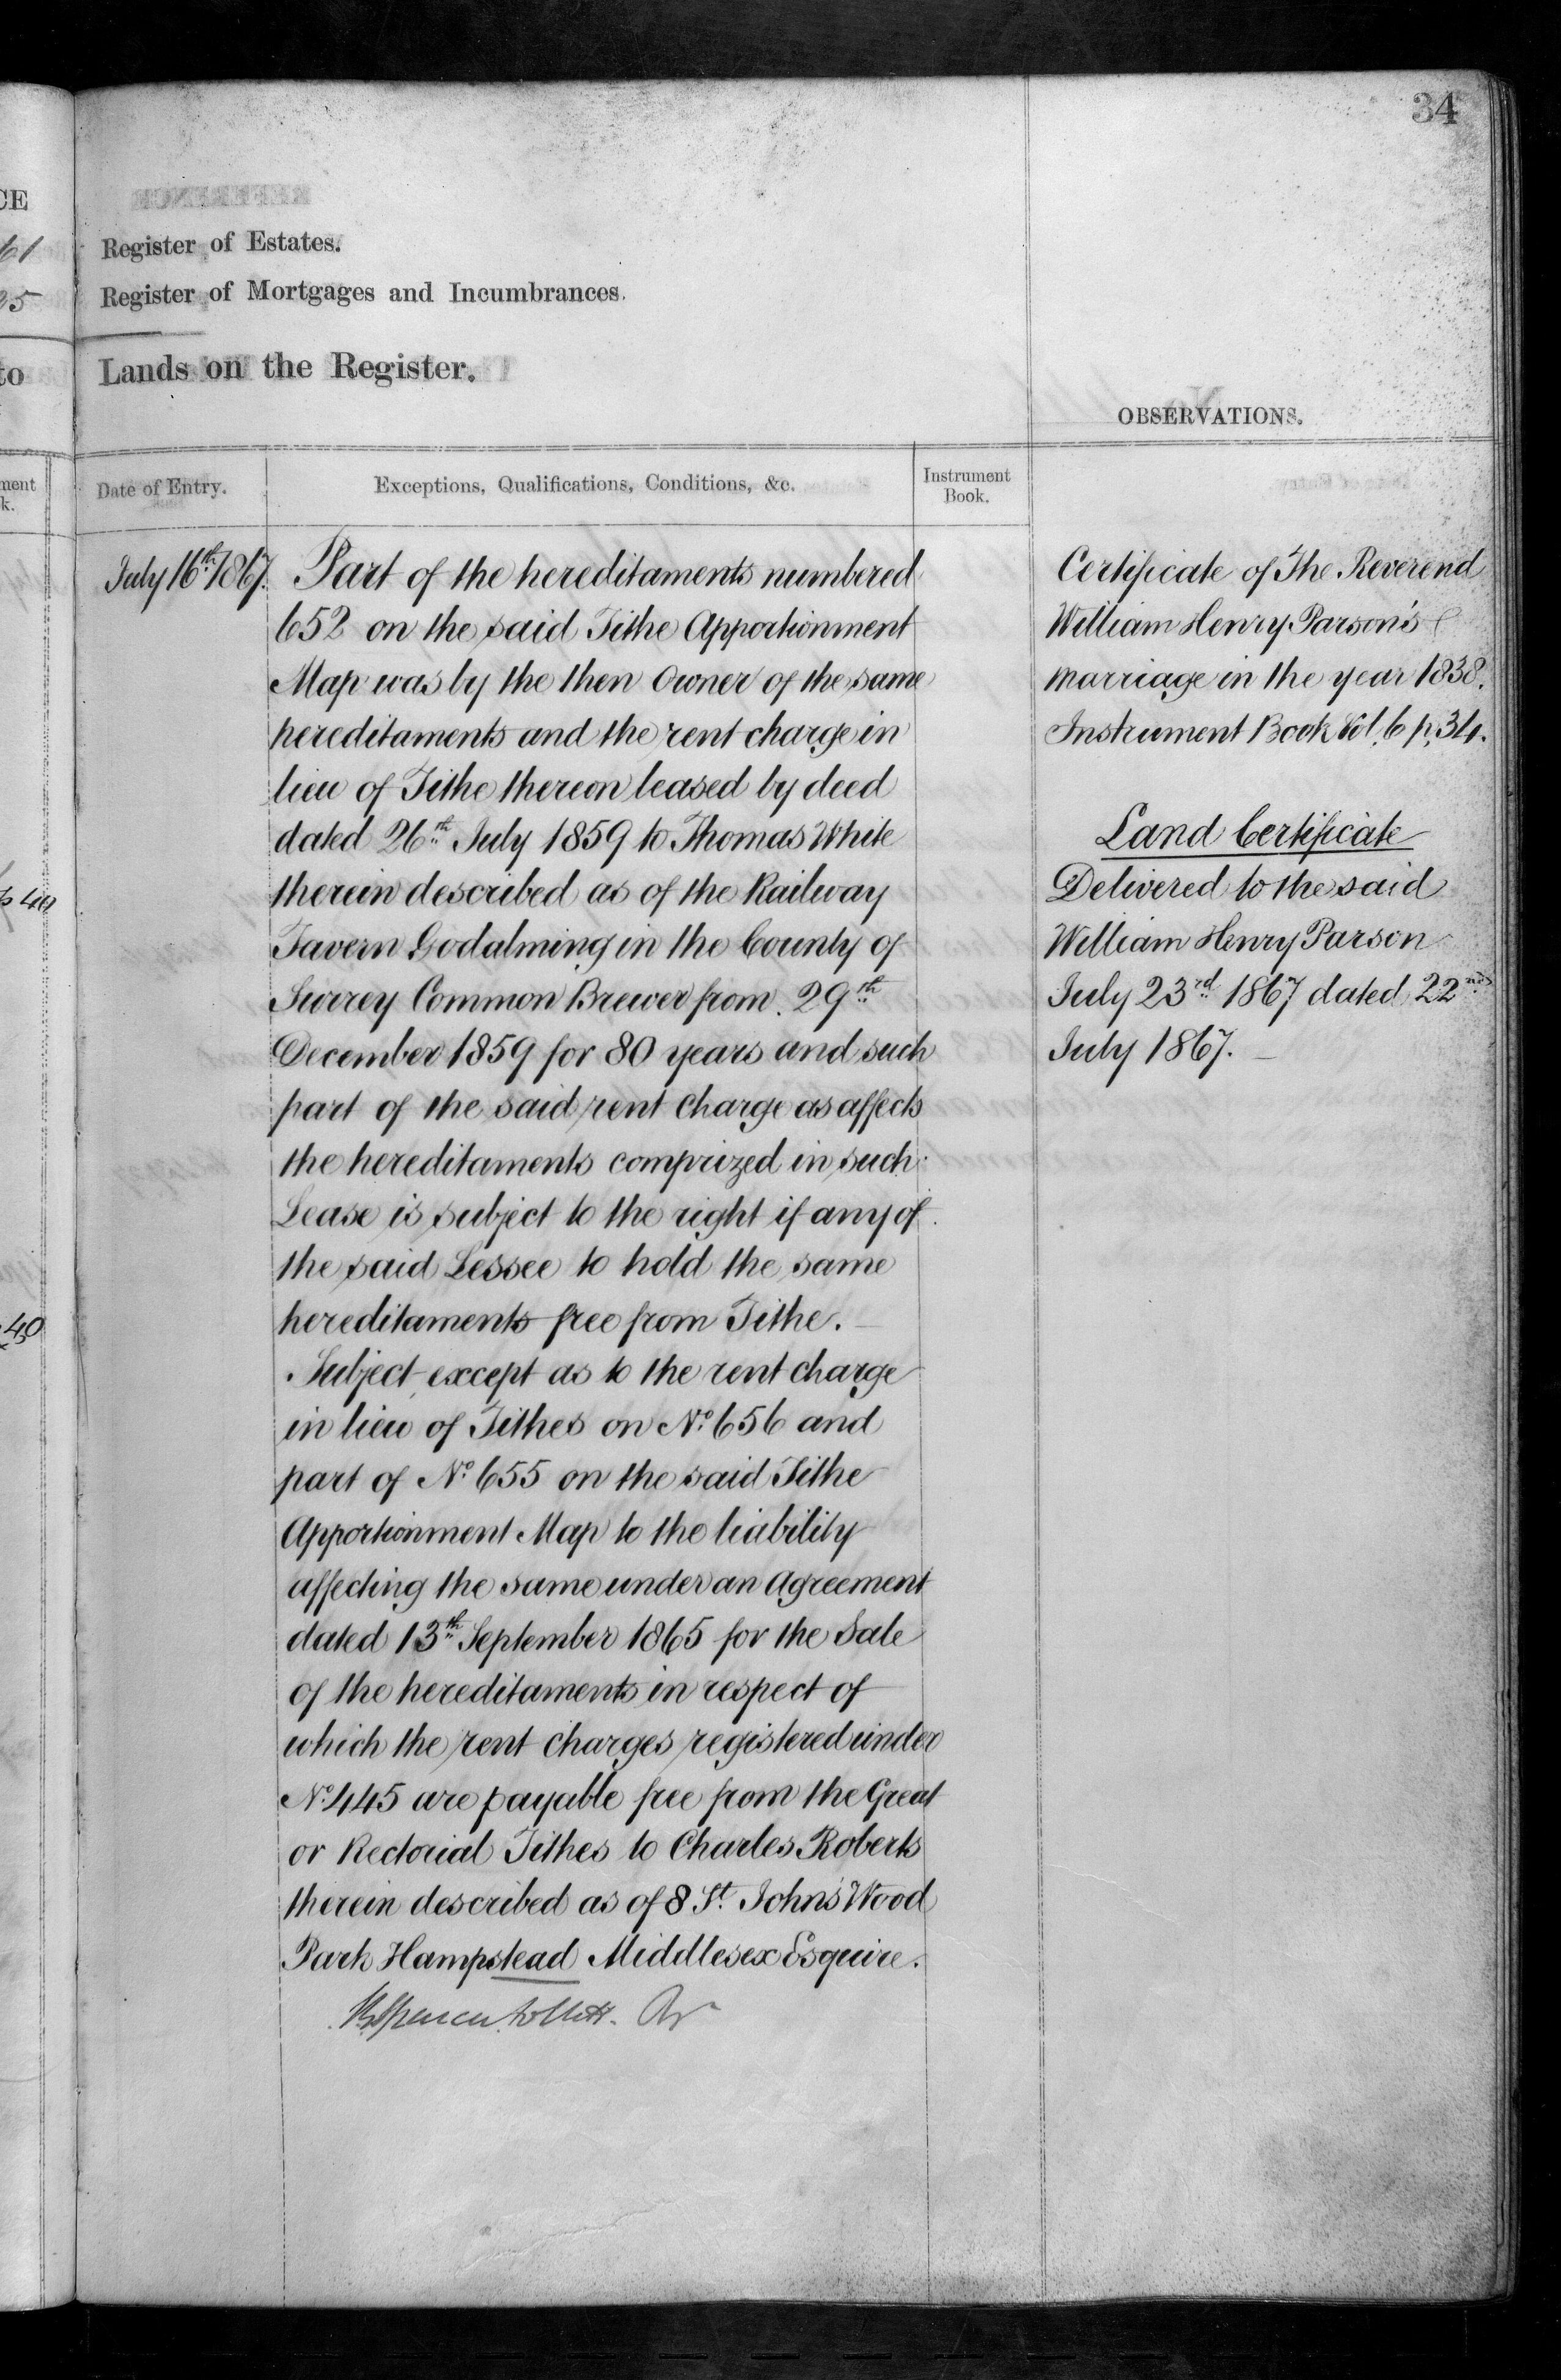 34
CE
61
35
to
ment
k.
40
Register of Estates.
Register of Mortgages and Incumbrances.
Lands on the Register.
OBSERVATIONS.
Date of Entry.
Exceptions, Qualifications, Conditions, &c.
Instrument
Book.
July 16th 1867.
Part of the hereditaments numbered
652 on the said Tithe Apportionment
Map was by the then Owner of the same
hereditaments and the rent charge in
lieu of Tithe thereon leased by deed
dated 26th July 1859 to Thomas White
therein described as of the Railway
Tavern Godalming in the County of
Surrey Common Brewer from 29th
December 1859 for 80 years and such
part of the said rent charge as affects
the hereditaments comprized in such
Lease is subject to the right if any of
the said Lessee to hold the same
hereditaments free from Tithe.
Subject except as to the rent charge
in lieu of Tithes on No. 656 and
part of No. 655 on the said Tithe
Apportionment Map to the liability
affecting the same under an Agreement
dated 13th September 1865 for the Sale
of the hereditaments in respect of
which the rent charges registered under
No. 445 are payable free from the Great
or Rectorial Tithes to Charles Roberts
therein described as of 8 St. John's Wood
Park Hampstead Middlesex Esquire.
Certificate of The Reverend
William Henry Parson's
marriage in the year 1838.
Instrument Book Vol. 6 p. 34.
Land Certificate
Delivered to the said
William Henry Parson
July 23rd 1867 dated 22nd
July 1867.